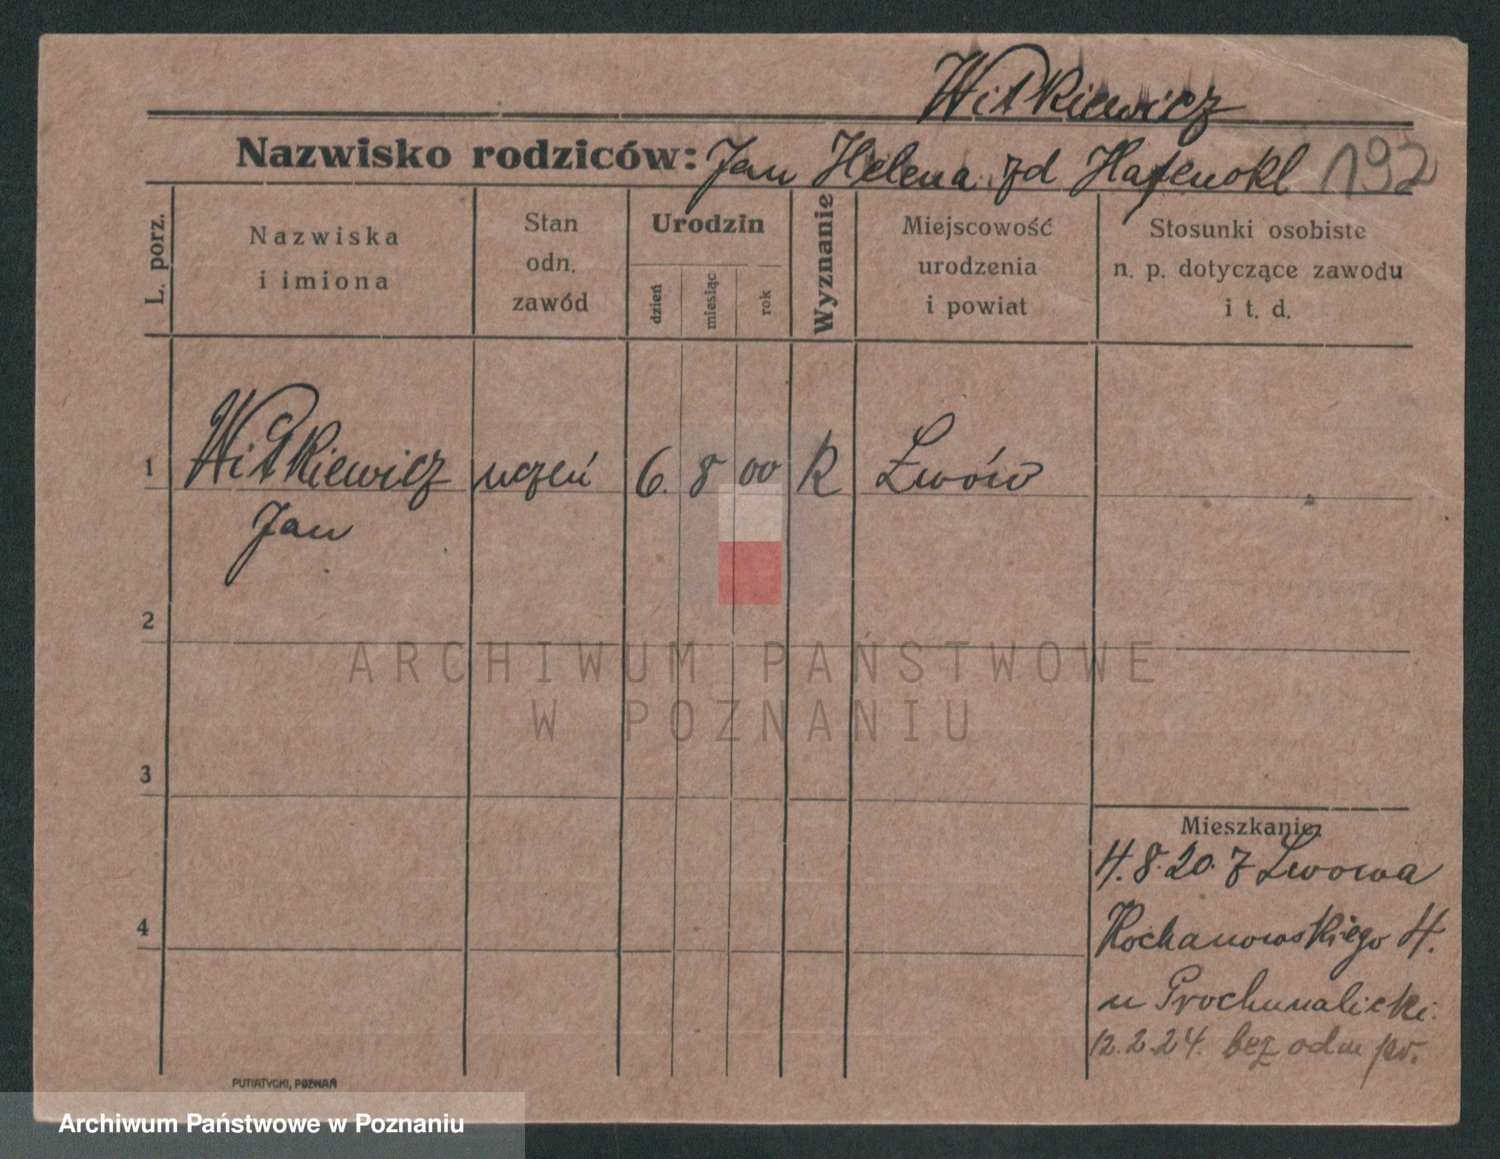 Witkiewicz
Nazwisko rodziców: Jan Helena zd 192
L. porz.
Nazwiska
i imiona
Stan
odn.
zawód
Urodzin
dzień
miesiąc
rok
Wyznanie
Miejscowość
urodzenia
i powiat
Stosunki osobiste
n. p. dotyczące zawodu
i t. d.
1 Witkiewicz uczeń 6. 8 00 K Lwów
Jan
2
ARCHIWUM PAŃSTWOWE
W POZNANIU
3
Mieszkanie:
4. 8. 20. z Lwowa
4
Kochanowskiego 4.
u
12. 2. 24. bez odm
PUTIATYCKI, POZNAŃ
Archiwum Państwowe w Poznaniu